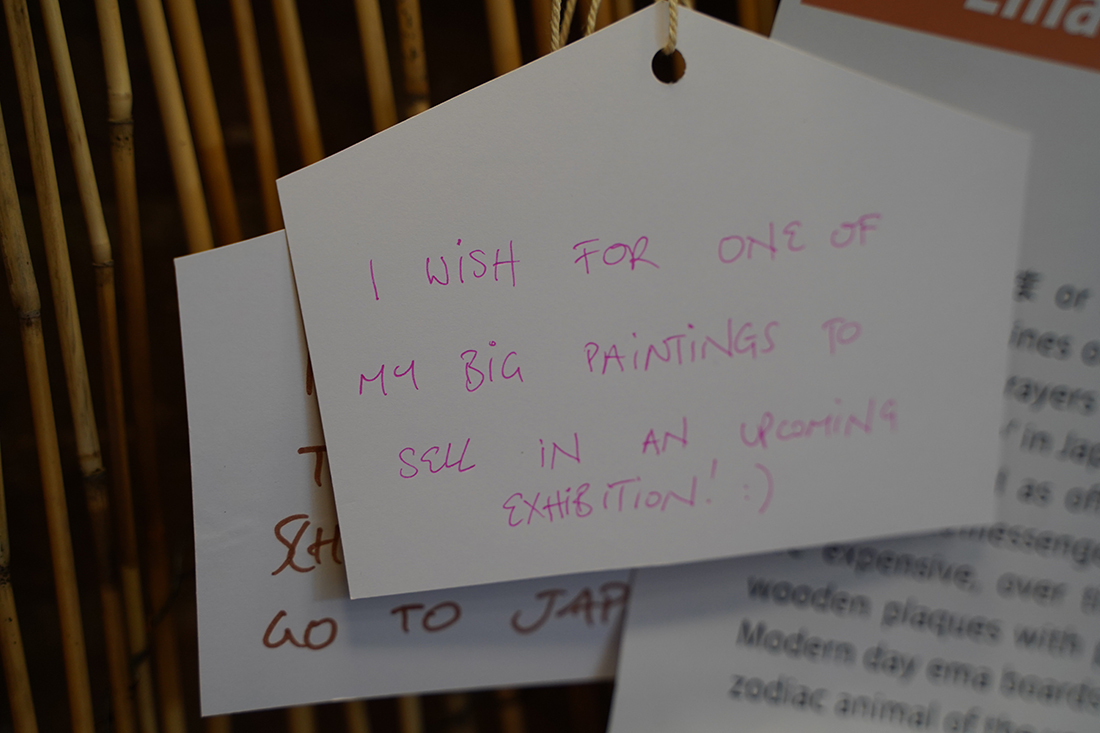 Ema
I WISH FOR ONE OF
MY BIG PAINTINGS TO
SELL IN AN UPCOMING
EXHIBITION! :)
GO TO JAP
or
in Jap
as
expensive, over
wooden plaques with
Modern day ema boards
zodiac animal of the